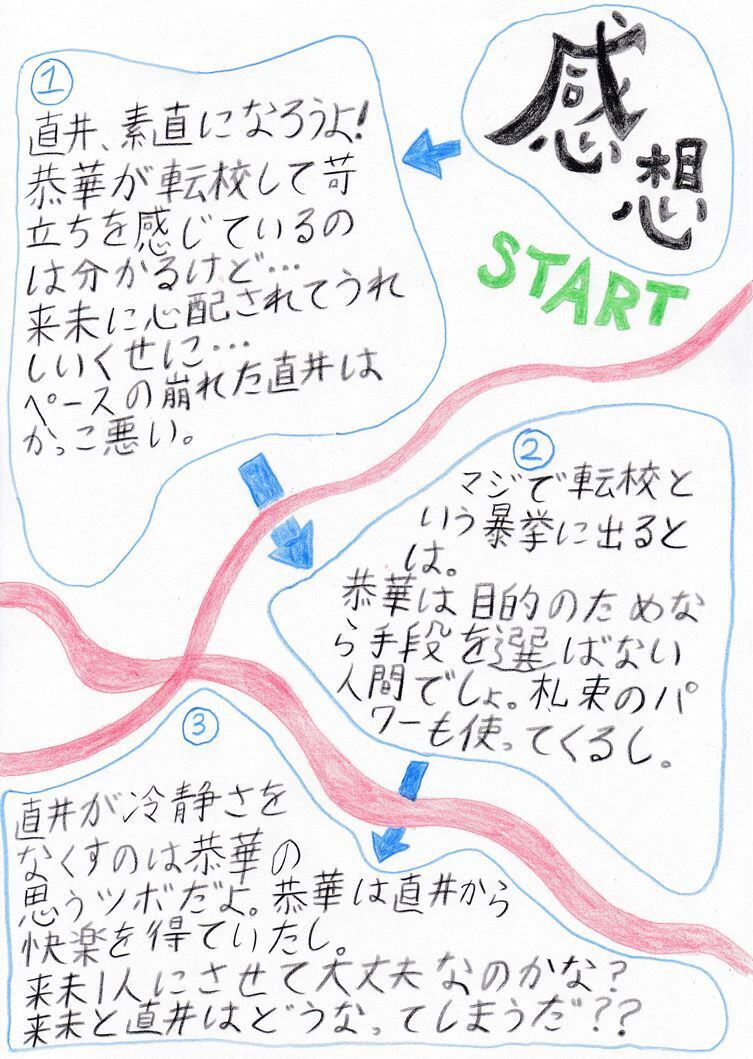 感想
START
①
直井、素直になろうよ!
恭華が転校して苛
立ちを感じているの
は分かるけど…
来未に心配されてうれ
しいくせに…
ペースの崩れた直井は
かっこ悪い。
②
マジで転校と
いう暴挙に出ると
は。
恭華は目的のためな
ら手段を選ばない
人間でしょ。札束のパ
ワーも使ってくるし。
③
直井が冷静さを
なくすのは恭華の
思うツボだよ。恭華は直井から
快楽を得ていたし。
来未1人にさせて大丈夫なのかな?
来未と直井はどうなってしまうだ??